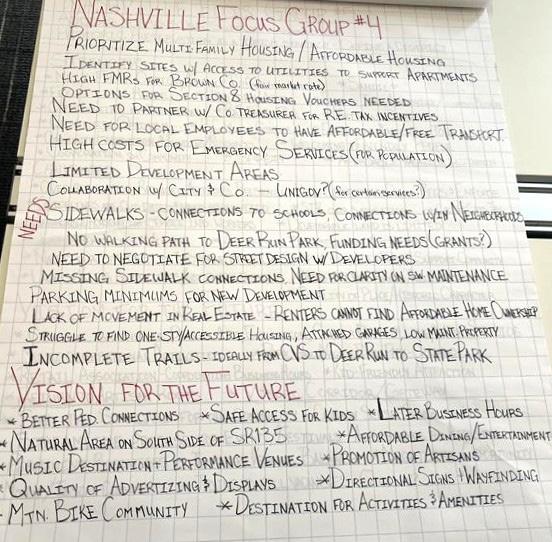 NASHVILLE FOCUS GROUP #4
PRIORITIZE MULTI-FAMILY HOUSING / AFFORDABLE HOUSING
IDENTIFY SITES W/ ACCESS TO UTILITIES TO SUPPORT APARTMENTS
HIGH FMRS FOR BROWN CO. (fair market rate)
OPTIONS FOR SECTION 8 HOUSING VOUCHERS NEEDED
NEED TO PARTNER W/ CO. TREASURER FOR R.E. TAX INCENTIVES
NEED FOR LOCAL EMPLOYEES TO HAVE AFFORDABLE/FREE TRANSPORT.
HIGH COSTS FOR EMERGENCY SERVICES (FOR POPULATION)
LIMITED DEVELOPMENT AREAS
COLLABORATION W/ CITY & CO. - UNIGOV? (for certain services?)
NEEDS
SIDEWALKS - CONNECTIONS TO SCHOOLS, CONNECTIONS W/IN NEIGHBORHOODS
NO WALKING PATH TO DEER RUN PARK, FUNDING NEEDS (GRANTS?)
NEED TO NEGOTIATE FOR STREET DESIGN W/ DEVELOPERS
MISSING SIDEWALK CONNECTIONS, NEED FOR CLARITY ON SW MAINTENANCE
PARKING MINIMUMS FOR NEW DEVELOPMENT
LACK OF MOVEMENT IN REAL ESTATE - RENTERS CANNOT FIND AFFORDABLE HOME OWNERSHIP
STRUGGLE TO FIND ONE-STY/ACCESSIBLE HOUSING, ATTACHED GARAGES, LOW MAINT. PROPERTY
INCOMPLETE TRAILS - IDEALLY FROM CVS TO DEER RUN TO STATE PARK
VISION FOR THE FUTURE
* BETTER PED. CONNECTIONS * SAFE ACCESS FOR KIDS * LATER BUSINESS HOURS
* NATURAL AREA ON SOUTH SIDE OF SR135 * AFFORDABLE DINING/ENTERTAINMENT
* MUSIC DESTINATION + PERFORMANCE VENUES * PROMOTION OF ARTISANS
* QUALITY OF ADVERTIZING & DISPLAYS * DIRECTIONAL SIGNS + WAYFINDING
* MTN. BIKE COMMUNITY * DESTINATION FOR ACTIVITIES & AMENITIES